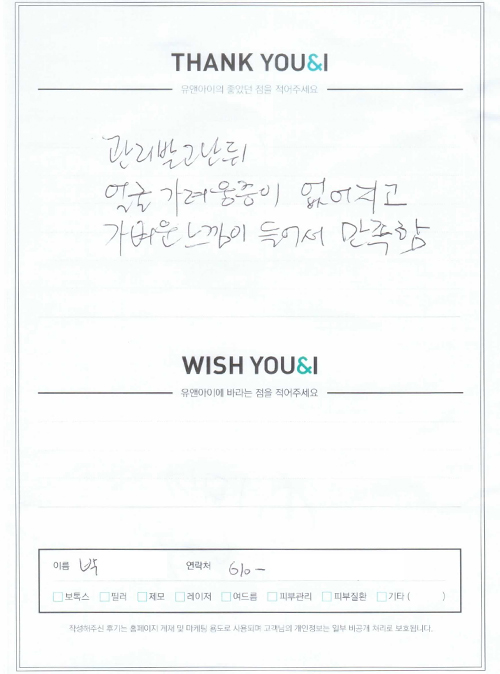 THANK YOU&I
유앤아이의 좋았던 점을 적어주세요
관리받고난뒤
얼굴 가려움증이 없어지고
가벼운느낌이 들어서 만족함
WISH YOU&I
유앤아이에 바라는 점을 적어주세요
이름 박 연락처 610-
보톡스 필러 제모 레이저 여드름 피부관리 피부질환 기타 ( )
작성해주신 후기는 홈페이지 게재 및 마케팅 용도로 사용되며 고객님의 개인정보는 일부 비공개 처리로 보호됩니다.